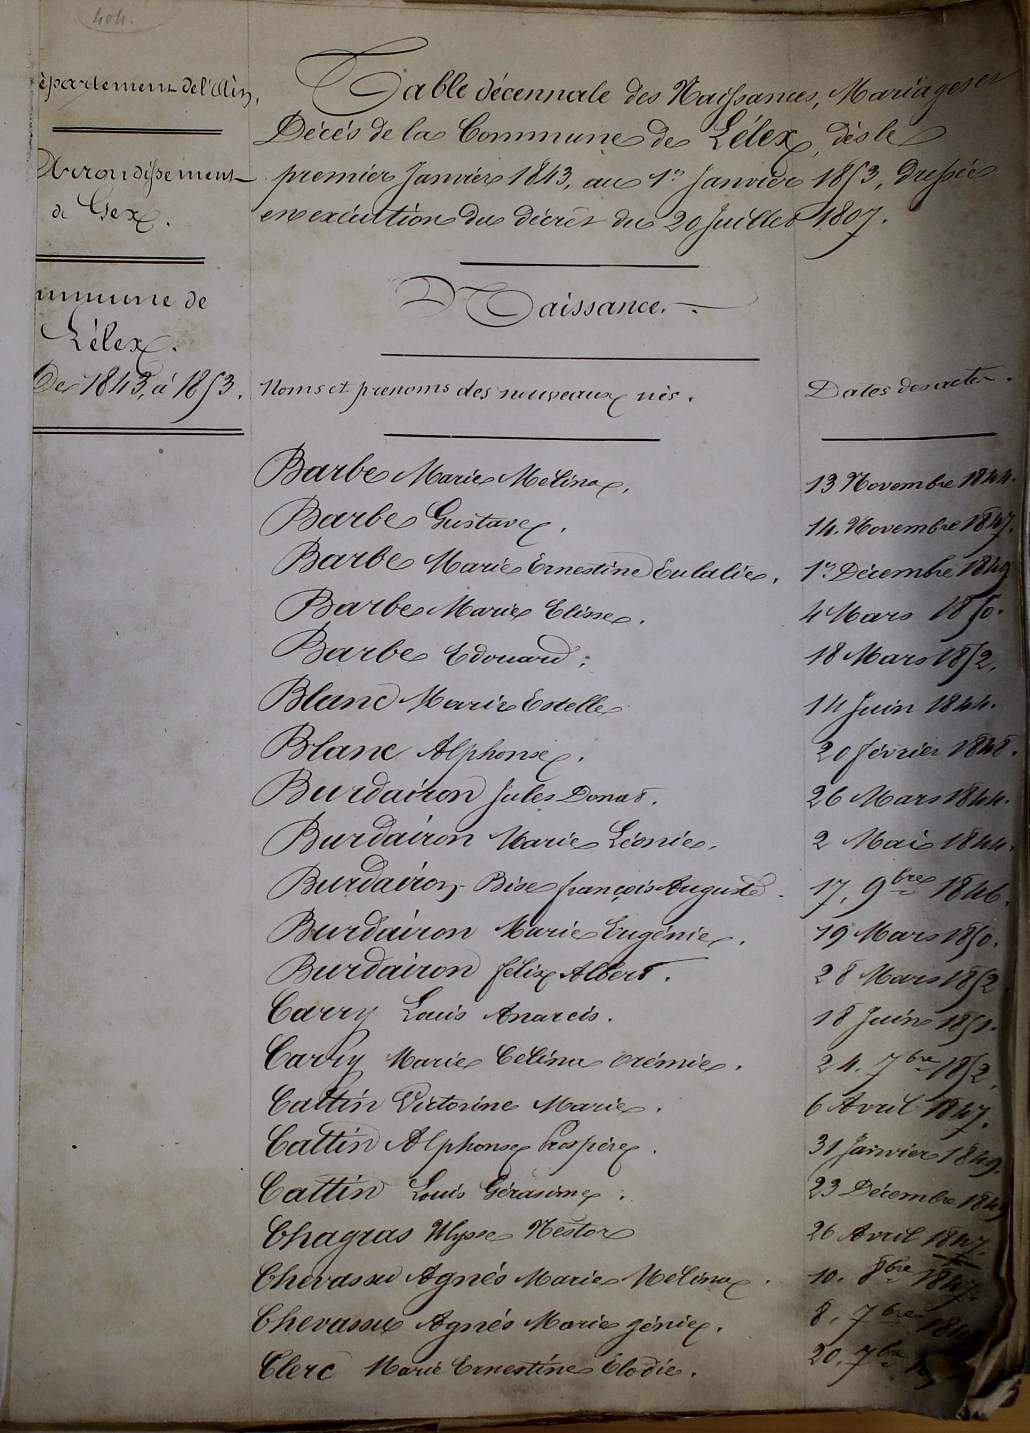 404.
épartement de l'Ain,
Arrondissement
de Gex.
ommune de
Lélex.
De 1843, à 1853.
Table décennale des Naissances, Mariages et
Décès de la Commune de Lélex, dès le
premier Janvier 1843, au 1er Janvier 1853, Dressée
en exécution du décret du 20 Juillet 1807.
Naissance.
Noms et prenoms des nouveaux nés. Dates des actes.
Barbe Marie Mélina, 13 Novembre 1844.
Barbe Gustave. 14. Novembre 1847.
Barbe Marie Ernestine Eulalie, 1er Décembre 1849
Barbe Marie Elisse. 4 Mars 1850.
Barbe Edouard. 18 Mars 1852.
Blanc Marie Estelle 14 Juin 1844.
Blanc Alphonse. 20 février 1848.
Burdairon Jules Donat. 26 Mars 1844.
Burdairon Marie Léonie. 2 Mai 1844.
Burdairon Bise françois Auguste. 17, 9bre 1846.
Burdairon Marie Eugénie. 19 Mars 1850.
Burdairon félix Albert. 28 Mars 1852
Carry Louis Anarcis. 18 Juin 1851.
Carry Marie Célina Orémie. 24. 7bre 1852.
Cattin Victorine Marie. 6 Avril 1847.
Cattin Alphonse Prospère. 31 Janvier 1849.
Cattin Louis Gérasime. 23 Décembre
Chagras Ulysse Nestor 26 Avril 1847.
Chevassu Agnés Marie Mélina. 10. 8bre 1847.
Chevassu Agnés Marie génie. 8. 7bre
Clerc Marie Ernestine Elodie. 20. 7bre